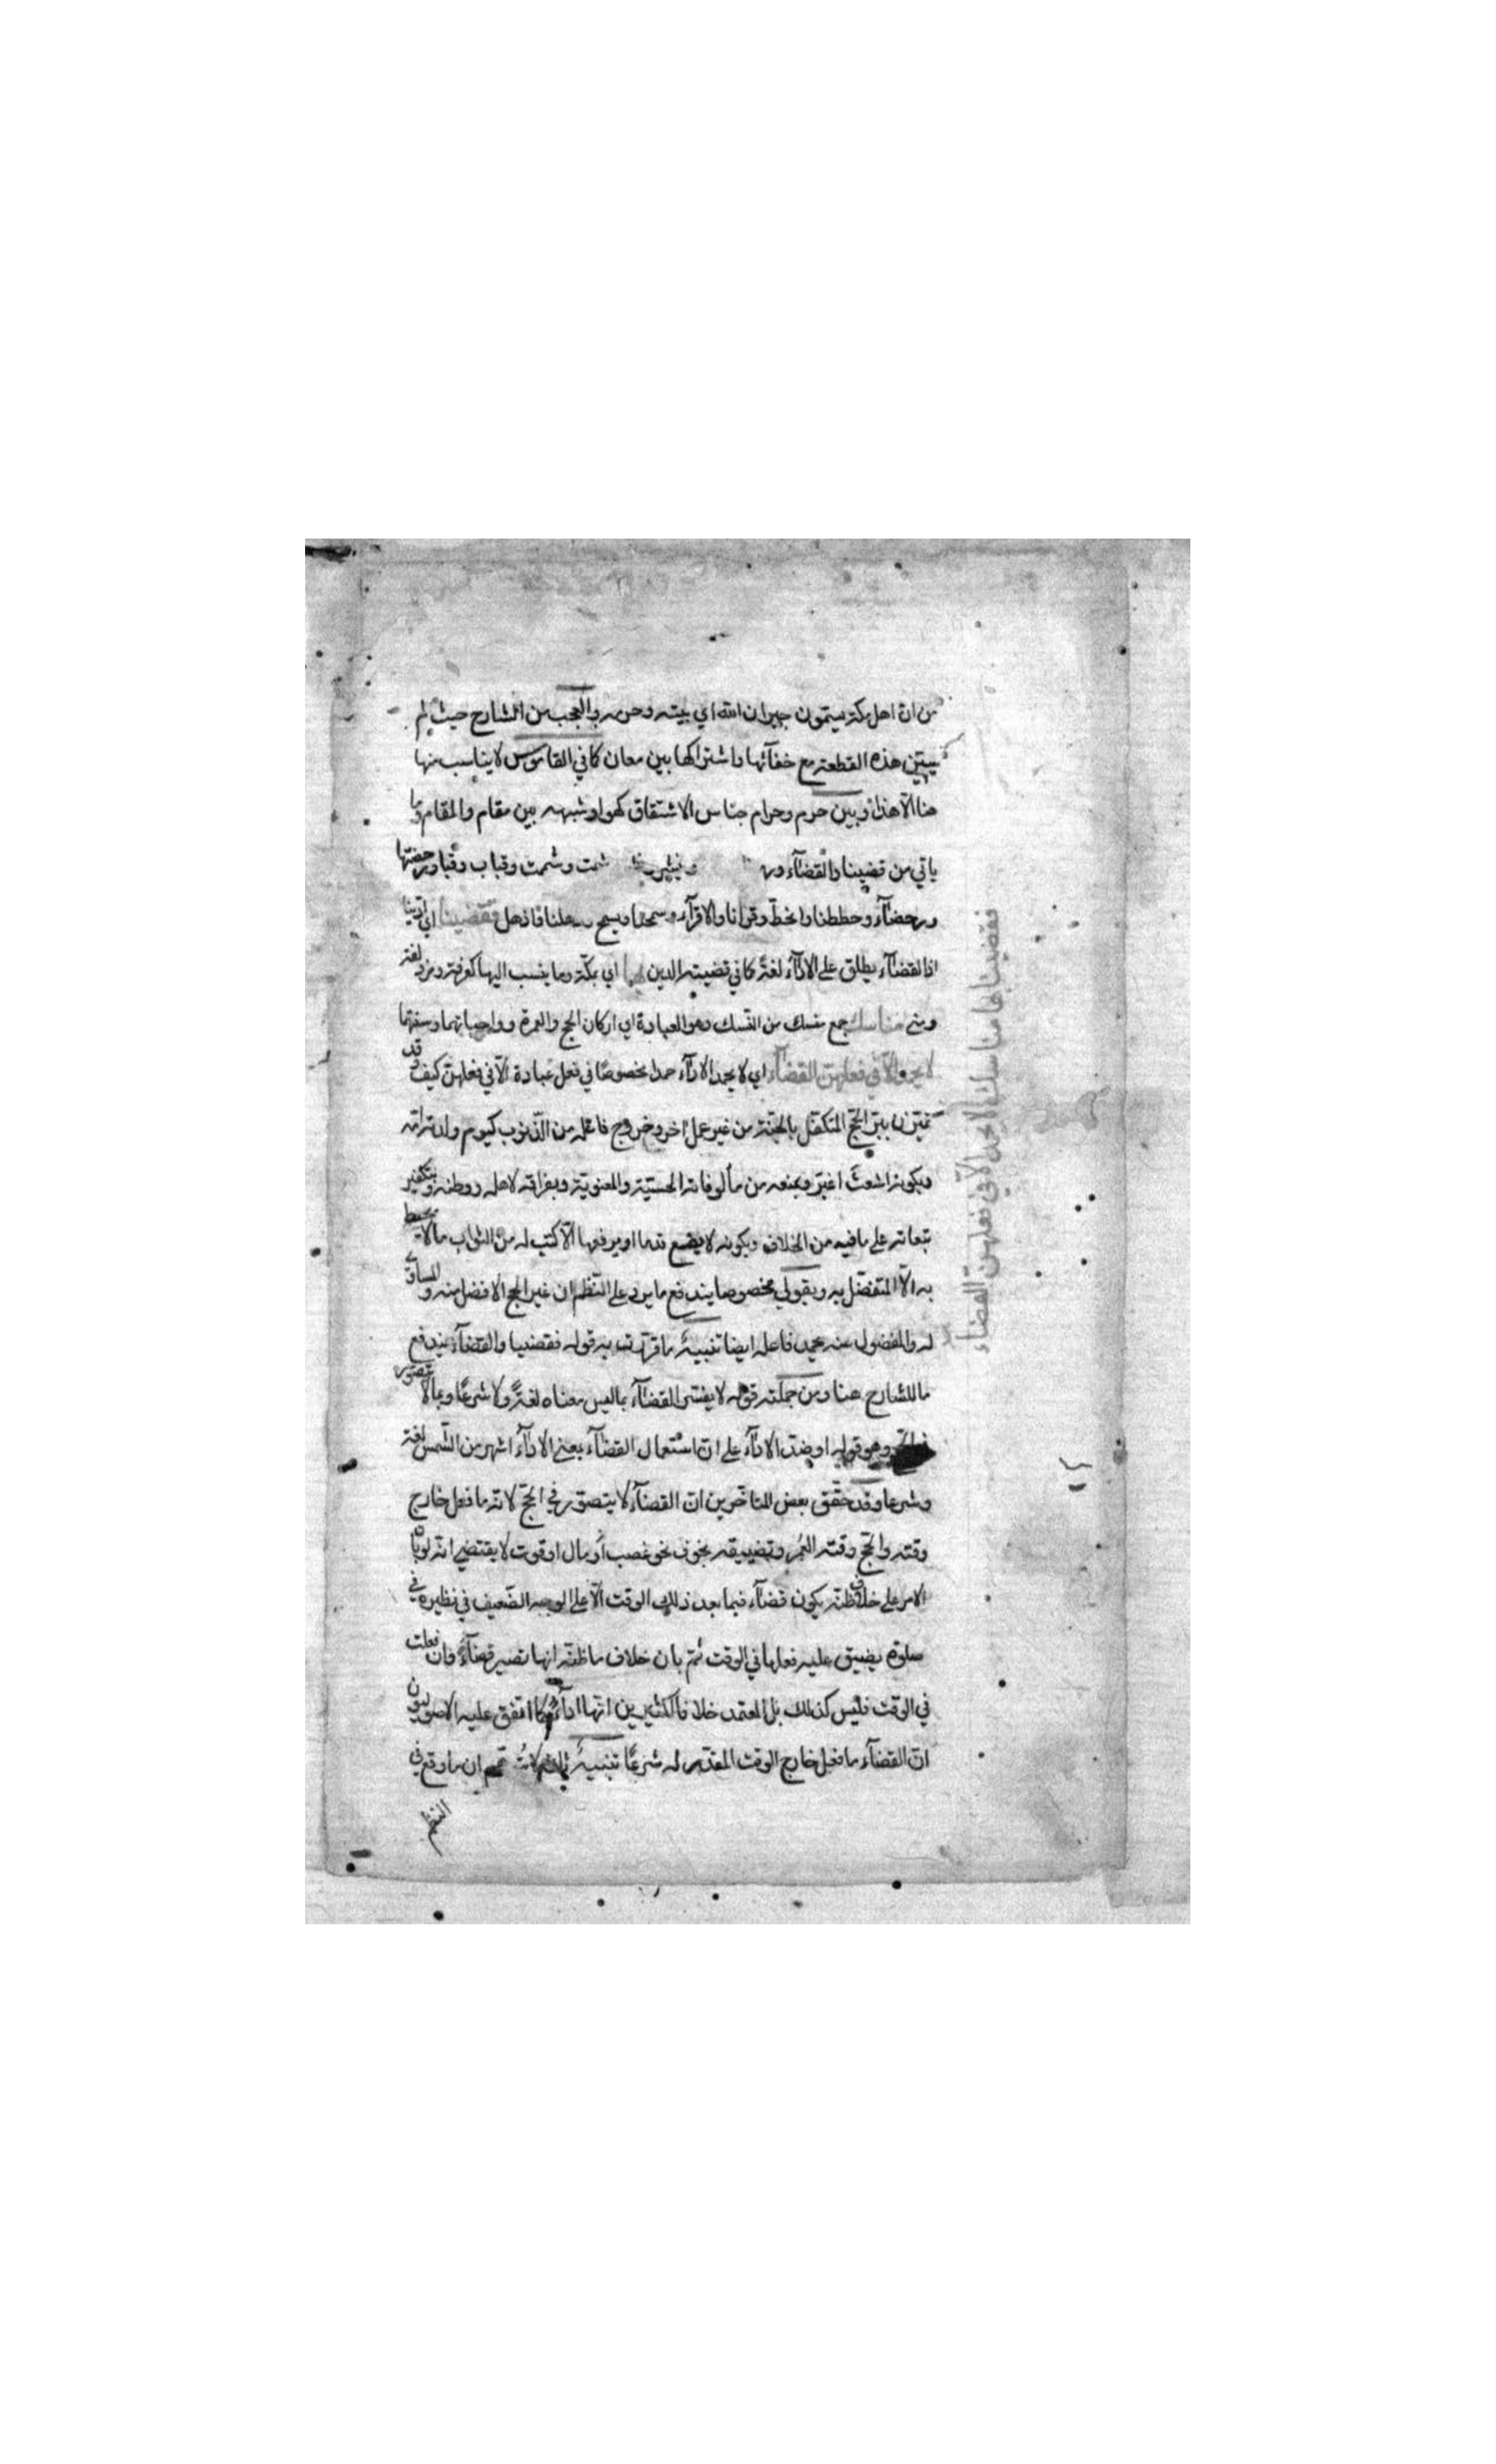 من ان اهل مكة يسمون جيران الله اي بيته وحرمه والعجب من الشارح حيث لم
يبين هذه القطعة مع خفائها واشتراكها بين معان كما في القاموس لا يناسب منها
هنا الا هذا وبين حرم وحرام جناس الاشتقاق كهو او شبهه بين مقام والمقام وما
ياتي من قضينا والقضاء شمت وشمت وقباب وقبا ورحضتها
ورحضاء وحططنا والخط وقرانا والاقراء فقضينا اي ادينا
اذ القضاء يطلق على الاداء لغة كما في قضيت الدين بها اي بمكة وما ينسب اليها كعرفة ومزدلفة
ومنى مناسك جمع منسك من النسك وهو العبادة اي اركان الحج والعمرة وواجباتهما وسننهما
لا يحمد الا في فعلهن القضاء اي لا يحمد الاداء حمدا مخصوصا في فعل عبادة الا في فعلهن كيف وقد
تميزن ببر الحج المتكفل بالجنة من غير عمل اخر وخروج فاعله من الذنوب كيوم ولدته امه
وبكونه اشعث اغبر وبمنعه من مألوفاته الحسية والمعنوية وبفراقه لاهله ووطنه وبتكفير
تبعاته على ما فيه من الخلاف وبكونه لا يضع قدما او يرفعها الا كتب له من الثواب ما لا يحيط
به الا المتفضل به وبقولي مخصوصا يندفع ما يرد على النظم ان غير الحج الافضل منه والمساوي
له والمفضول عنه يحمد فاعله ايضا تنبيه ما قررت به قوله فقضينا والقضاء يندفع
ما للشارح هنا ومن جملته قوله لا يفسر القضاء بما ليس معناه لغة ولا شرعا وبما لا يتصور
في الحج وهو قوله او ضد الاداء على ان استعمال القضاء بمعنى الاداء اشهر من الشمس لغة
وشرعا وقد حقق بعض المتاخرين ان القضاء لا يتصور في الحج لانه ما فعل خارج
وقته والحج وقته العمر وتضييقه بخوف نحو غصب او مال او فوت لا يقتضي انه لو بان
الامر على خلاف ظنه يكون قضاء فيما بعد ذلك الوقت الا على الوجه الضعيف في نظيره في
صلوة يضيق عليه فعلها في الوقت ثم بان خلاف ما ظنه انها تصير قضاء وان فعلت
في الوقت فليس كذلك بل المعتمد خلافا لكثيرين انها اداء كما اتفق عليه الاصوليون
ان القضاء ما فعل خارج الوقت المقدر له شرعا تنبيه ثان ان ما وقع في
النظم
فقضينا بها مناسك لا يحمد الا في فعلهن القضاء